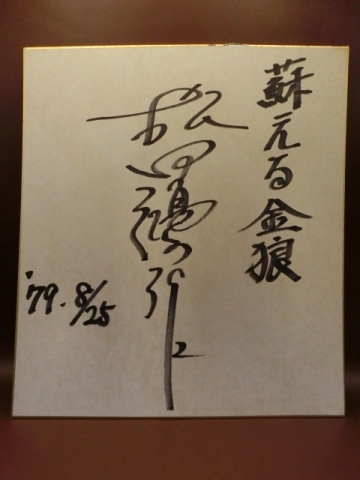 蘇える金狼
松田優作
'79.8/25